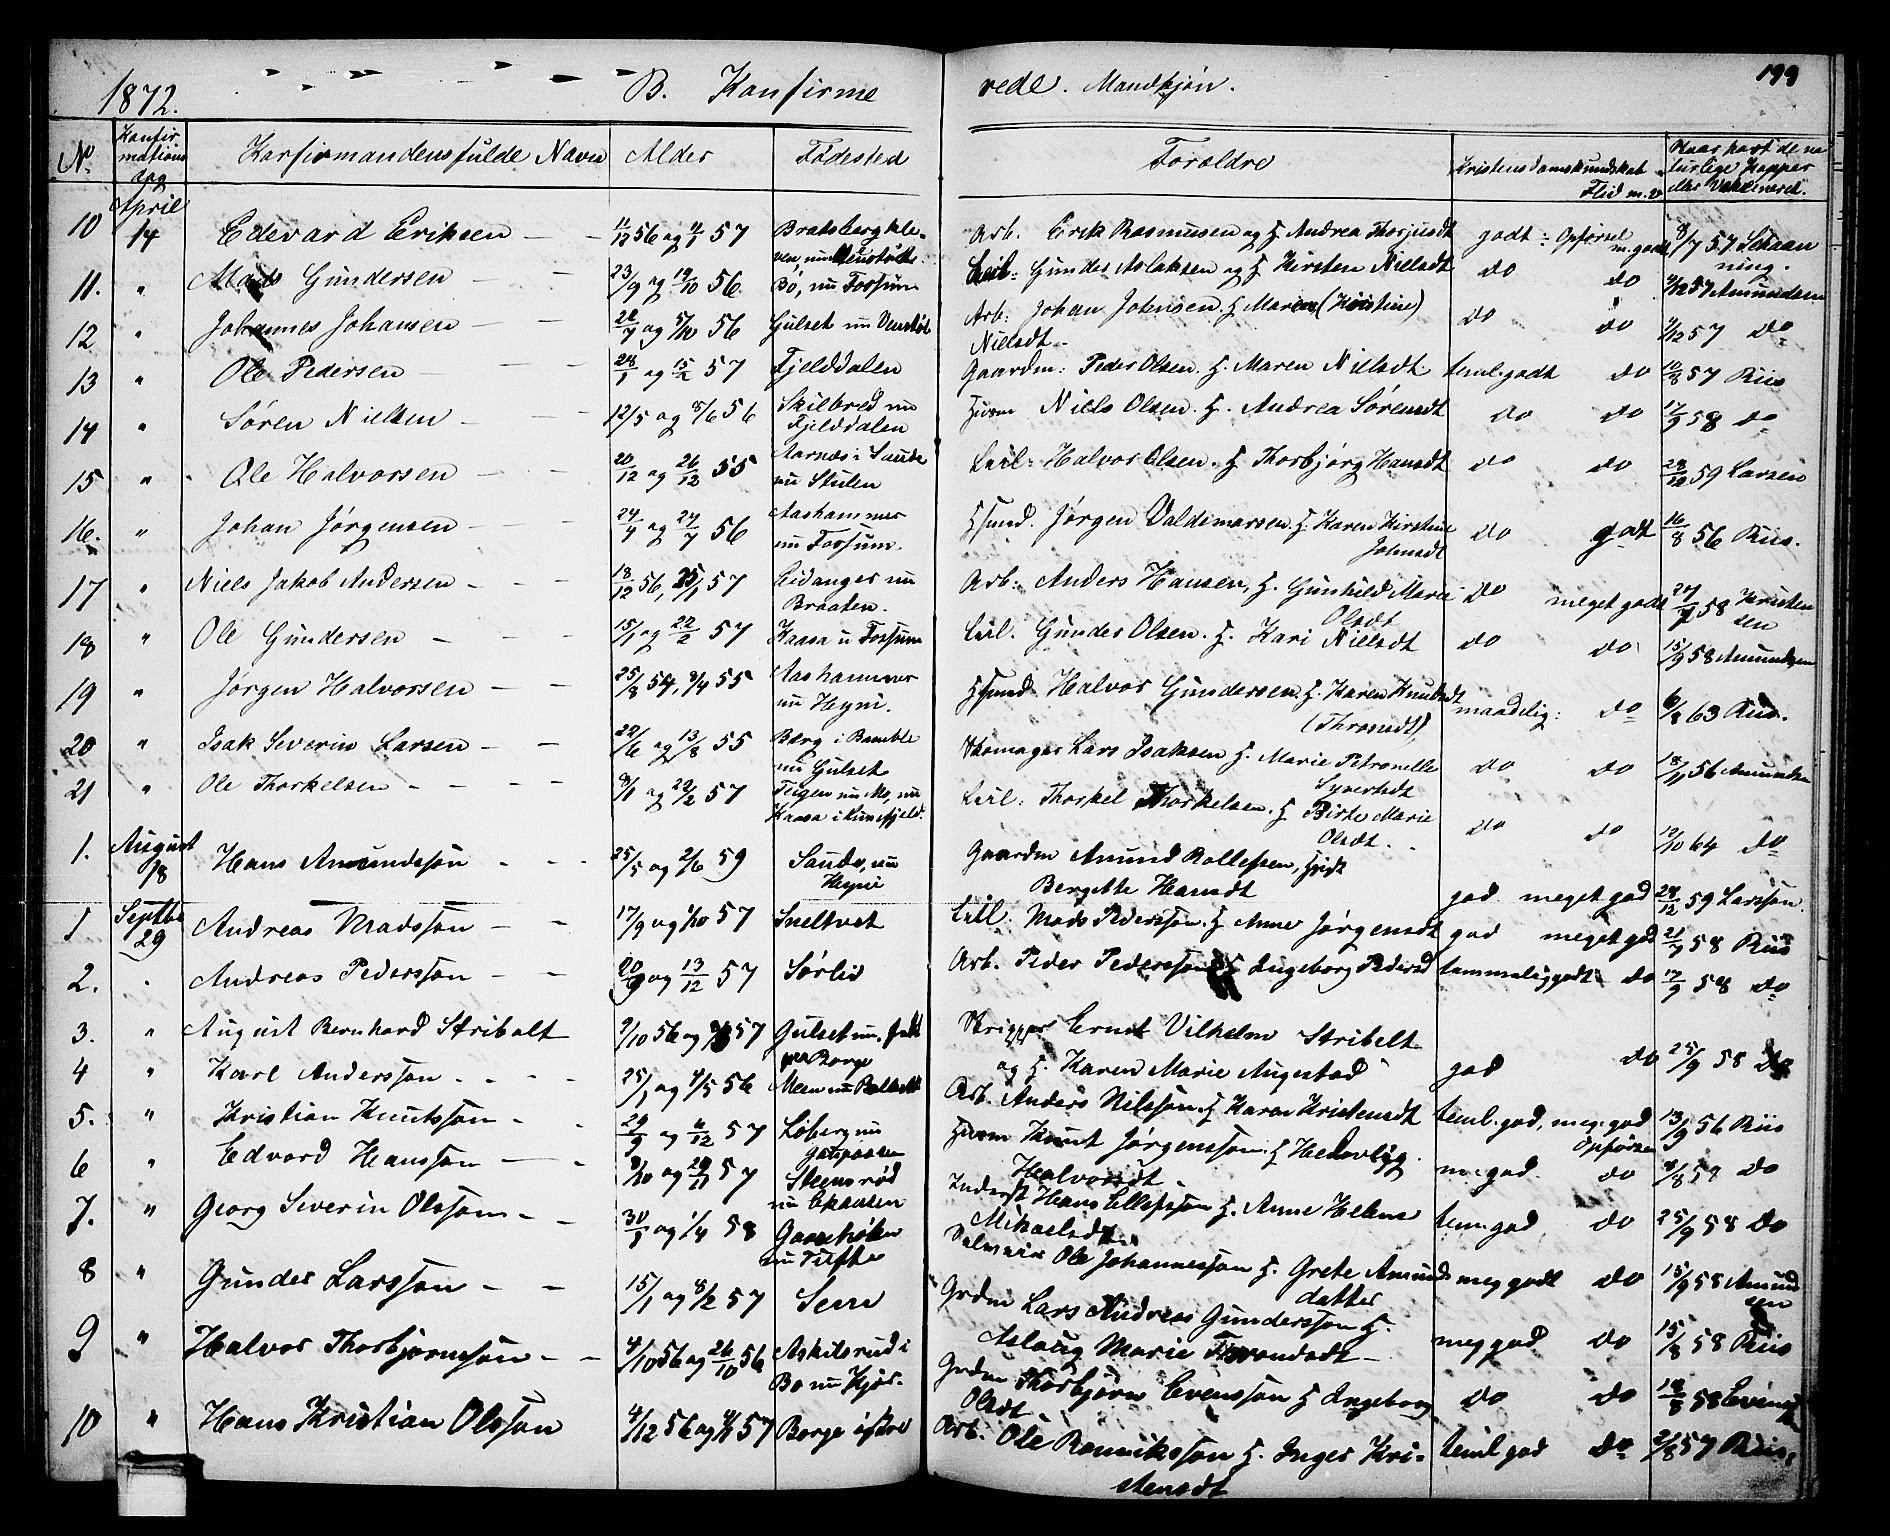 1872. B. Konfirme rede. Mandkjøn. 199
No Konfirmations dag Konfirmandens fulde Navn Alder Fødested Forældre Kristendomskundskab Flid m. v Naar havt de naturlige Kopper eller Vakcineret.
10 April 14 Edevard Eriksen 11/12 56 og 4/1 57 Bratsbergkleven, nu Arb. Erik Rasmussen og H. Andrea Thorjusdt godt: Opførsel m. godt 8/7 57 Schaanning.
11. " Mads Gundersen 23/9 og 19/10 56 Bø, nu Fossum Leil: Gunder Aslaksen og H. Kirsten Nielsdt do do 4/12 57 Amundsen
12 " Johannes Johansen 22/7 og 5/10 56 Gulset nu Venstøb Arb: Johan Johnsen H. Maren (Kirstine) Nielsdt do do 4/12 57 do
13 " Ole Pedersen 28/1 og 15/2 57 Fjelddalen Gaardm: Peder Olsen. H. Maren Nielsdt teml. godt do 10/8 57 Riis
14 " Søren Nielsen 12/5 og 8/6 56 Skilbred nu Fjelddalen Husm Niels Olsen. H. Andrea Sørensdt do do 17/9 58 do
15 " Ole Halvorsen 20/12 og 26/12 55 Aarnæs i Saude nu Stulen Leil: Halvor Olsen. H. Thorbjørg Hansdt do do 28/12 59 Larsen
16. " Johan Jørgensen 24/4 og 27/7 56 Aashammer nu Fossum. Hsmd. Jørgen Valdemarsen. H. Karen Kirstine Johnsdt do godt 16/8 56 Riis.
17 " Niels Jakob Andersen 18/12 56, 25/1 57 Eidanger nu Braaten. Arb: Anders Hansen, H. Gunhild Marie Olsdt do meget godt 58 Kristensen
18 " Ole Gundersen 15/1 og 22/2 57 Kaasa u Fossum Leil. Gunder Olsen. H. Kari Nielsdt do do 15/9 58 Amundsen
19 " Jørgen Halvorsen 25/8 54, 9/4 55 Aashammer nu Heyni. Hsmd. Halvor Gundersen. H. Karen Knudsdt (Throndsdt) maadelig: do 6/8 63 Riis.
20 " Isak Severin Larsen 22/6 og 13/8 55 Berg i Bamble nu Gulset Skomager Lars Isaksen H. Marie Petronelle Syvertsdt do do 18/11 56 Amundsen
21 " Ole Thorkelsen 9/1 og 22/2 57 nu Mo, nu Kaasa i Leil: Thorkel Thorkelsen. H Birte Marie Olsdt. do do 12/10 64 do
1. August 18 Hans Amundsson 25/5 og 2/6 59 Saude, nu Heyni Gaardm Amund Rollefsen, Hsidt Bergitte Hansdt god meget god 28/12 59 Larsson.
1 Septbr 29 Andreas Madsson 17/9 og 1/10 57 Sneltvet Leil. Mads Pedersson. H Anne Jørgensdt god meget god 21/9 58 Riis
2. Andreas Pedersson 20/9 og 13/12 57 Sørlid Arb. Peder Pedersson H Ingeborg Pedersd temmelig godt do 17/9 58 do
3. " August Bernhard Stribolt 9/10 56 og 57 Gulset nu Borge Skipper Ernst Vilhelm Stribelt og H. Karen Marie Augestad god do 25/9 58 do
4 " Karl Andersson 25/1 og 4/5 56 Meen nu Arb. Anders Nilsson H Karen Kristensdt teml. god, meg. god Opførsel 13/9 56 Riis
5. " Kristian Knutsson 29/9 og 6/12 57 Løberg nu Husm Knut Jørgensson. H Hedevlig. Halvorsdt m. god. do 4/8 59 do
6 " Edvard Hansson 9/10 og 29/11 57 Steensrød nu Ekaasen Inderst Hans Ellefsson H. Anne Helene Mikaelsdt. tem. god do 25/9 58 do
7. " Georg Severin Olsson 30/1 og 1/4 58 nu Tufte Ole Johannesson H. Grete Amundsdatter meg godt do 15/9 58 Amundsen
8 " Gunder Larsson 15/1 og 8/2 57 Serre Grdm Lars Andreas Gundersson H. Aslaug Marie Trondsdt meg god do 15/8 58 Riis
9 " Halvor Thorbjørnsson 4/10 56 og 26/10 56 Askilsrud i Bø nu Kjør. Grdm Thorbjørn Evensson H Ingeborg Olsdt do do 18/8 58 Evensen
10 " Hans Kristian Olsson 4/12 56 og 4/1 57 Borge østre Arb: Ole Ranniksson H. Inger Kristensdt teml god do 2/8 57 Riis.